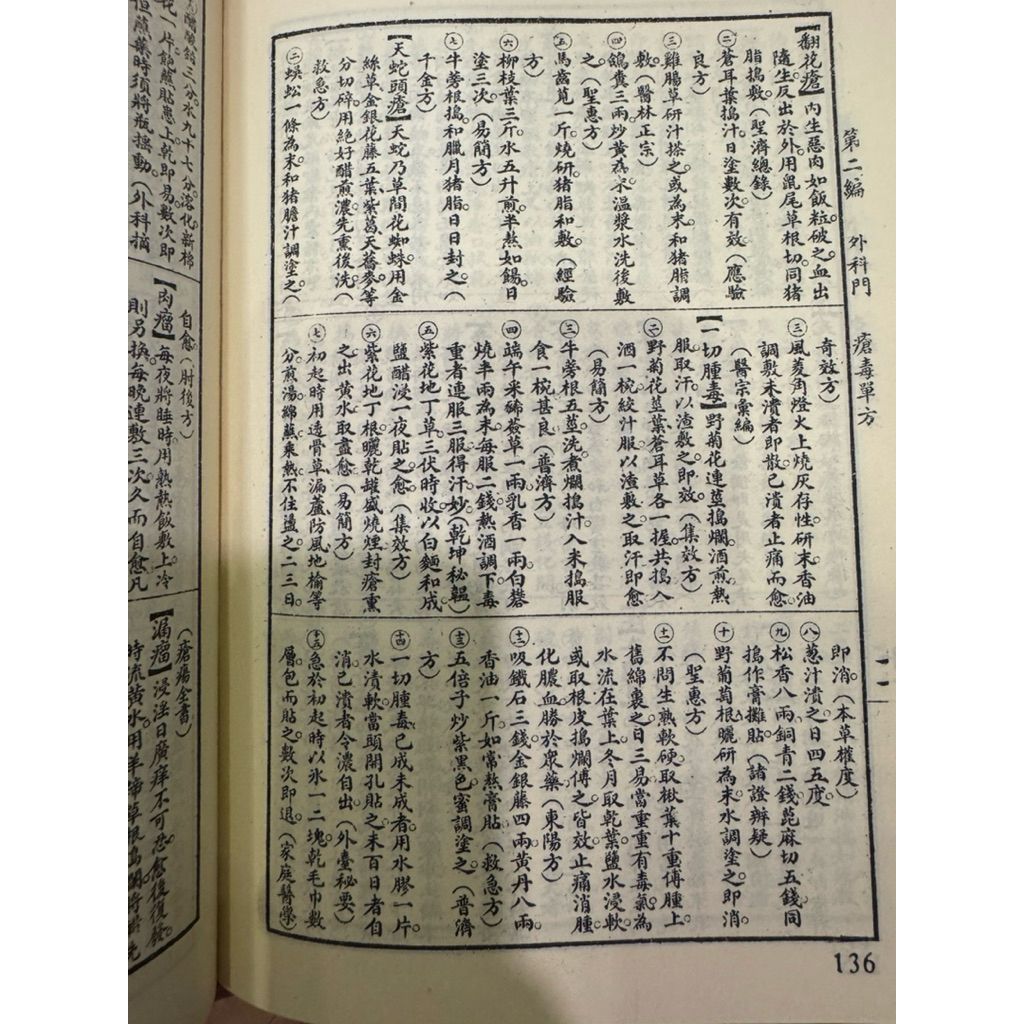 第二編　外科門　瘡毒單方
【翻花瘡】內生惡肉如飯粒。破之。血出
隨生。反出於外。用鼠尾草根切。同猪
脂搗敷。（聖濟總錄）
㊁蒼耳葉搗汁。日塗數次有效。（應驗
良方）
㊂雞腸草研汁搽之。或為末。和猪脂調
敷。（醫林正宗）
㊃鴿糞三兩。炒黃為末。溫漿水洗後敷
之。（聖惠方）
㊄馬齒莧一斤。燒研。猪脂和敷。（經驗
方）
㊅柳枝葉三斤。水五升。煎半熬如餳。日
塗三次。（易簡方）
㊆牛蒡根搗。和臘月猪脂。日日封之。（
千金方）
【天蛇頭瘡】天蛇乃草間花蜘蛛。用金
絲草金銀花藤五葉紫葛天蕎麥等
分。切碎。用絕好醋煎濃。先熏後洗。（
救急方）
㊁蜈蚣一條為末。和猪膽汁調塗之。（
奇效方）
㊂風菱角燈火上燒灰存性。研末。香油
調敷。未潰者即散。已潰者止痛而愈。
（醫宗彙編）
【一切腫毒】野菊花連莖搗爛。酒煎熱
服取汗。以渣敷之即效。（集效方）
㊁野菊花莖葉蒼耳草各一握。共搗。入
酒一椀。絞汁服。以渣敷之。取汗即愈。
（易簡方）
㊂牛蒡根五莖。洗煮爛搗汁。入米搗服
食一椀甚良。（普濟方）
㊃端午采豨薟草一兩乳香一兩白礬
燒半兩為末。每服二錢。熱酒調下。毒
重者連服三服。得汗妙。（乾坤秘韞）
㊄紫花地丁草。三伏時收。以白麵和成。
鹽醋浸一夜。貼之愈。（集效方）
㊅紫花地丁根。曬乾。罐盛燒煙。封瘡熏
之。出黃水。取盡愈。（易簡方）
㊆初起時用透骨草漏蘆防風地榆等
分。煎湯綿蘸。乘熱不住盪之。二三日
即消。（本草權度）
㊇蔥汁漬之。日四五度。
㊈松香八兩銅青二錢蓖麻切五錢。同
搗作膏攤貼。（諸證辨疑）
㊉野葡萄根曬研為末。水調塗之即消。
（聖惠方）
(十一)不問生熟軟硬。取楸葉十重傅腫上。
舊綿裹之。日三易。當重重有毒氣為
水。流在葉上。冬月取乾葉。鹽水浸軟。
或取根皮搗爛傅之。皆效。止痛消腫
化膿血。勝於衆藥。（東陽方）
(十二)吸鐵石三錢金銀藤四兩黃丹八兩。
香油一斤。如常熬膏貼。（救急方）
(十三)五倍子炒紫黑色。蜜調塗之。（普濟
方）
(十四)一切腫毒。已成未成者。用水膠一片。
水漬軟。當頭開孔貼之。未百日者自
消。已潰者令濃自出。（外臺秘要）
(十五)急於初起時以氷一二塊。乾毛巾數
層。包而貼之。數次即退。（家庭醫學）
136
三分。水九十七分。溶化。新棉
花一片飽蘸貼患上。乾即易。數次即
但煎藥時須將瓶搖動。（外科摘
自愈。（肘後方）
【肉瘤】每夜將睡時。用熱熱飯敷上。冷
則另換。每晚連敷三次。久而自愈。凡
（瘡瘍全書）
【漏瘤】浸淫日廣。痒不可忍。愈後復發。
時流黃水。用羊蹄草根搗